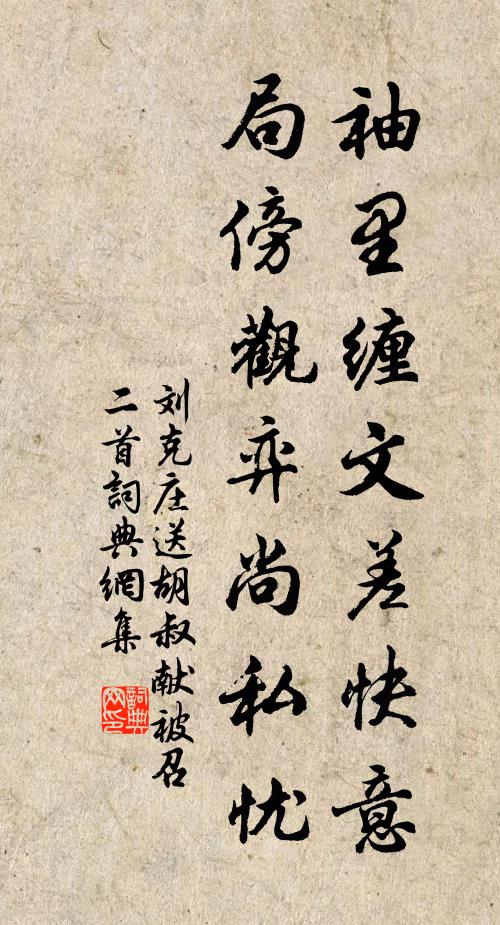 袖里缠文差快意
局傍觀弈尚私忧
刘克庄送胡叔献被召
二首詞典網集
詞典
网印